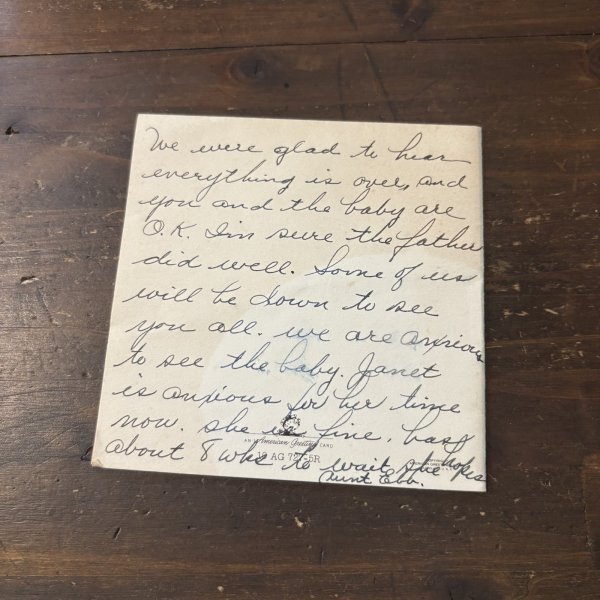 We were glad to hear
everything is over, and
you and the baby are
O.K. I'm sure the father
did well. Some of us
will be down to see
you all. we are anxious
to see the baby. Janet
is anxious for her time
now. she is fine. has
about 8 wks to wait she hopes
Aunt Ebb.
AN American Greetings CARD
AG 72